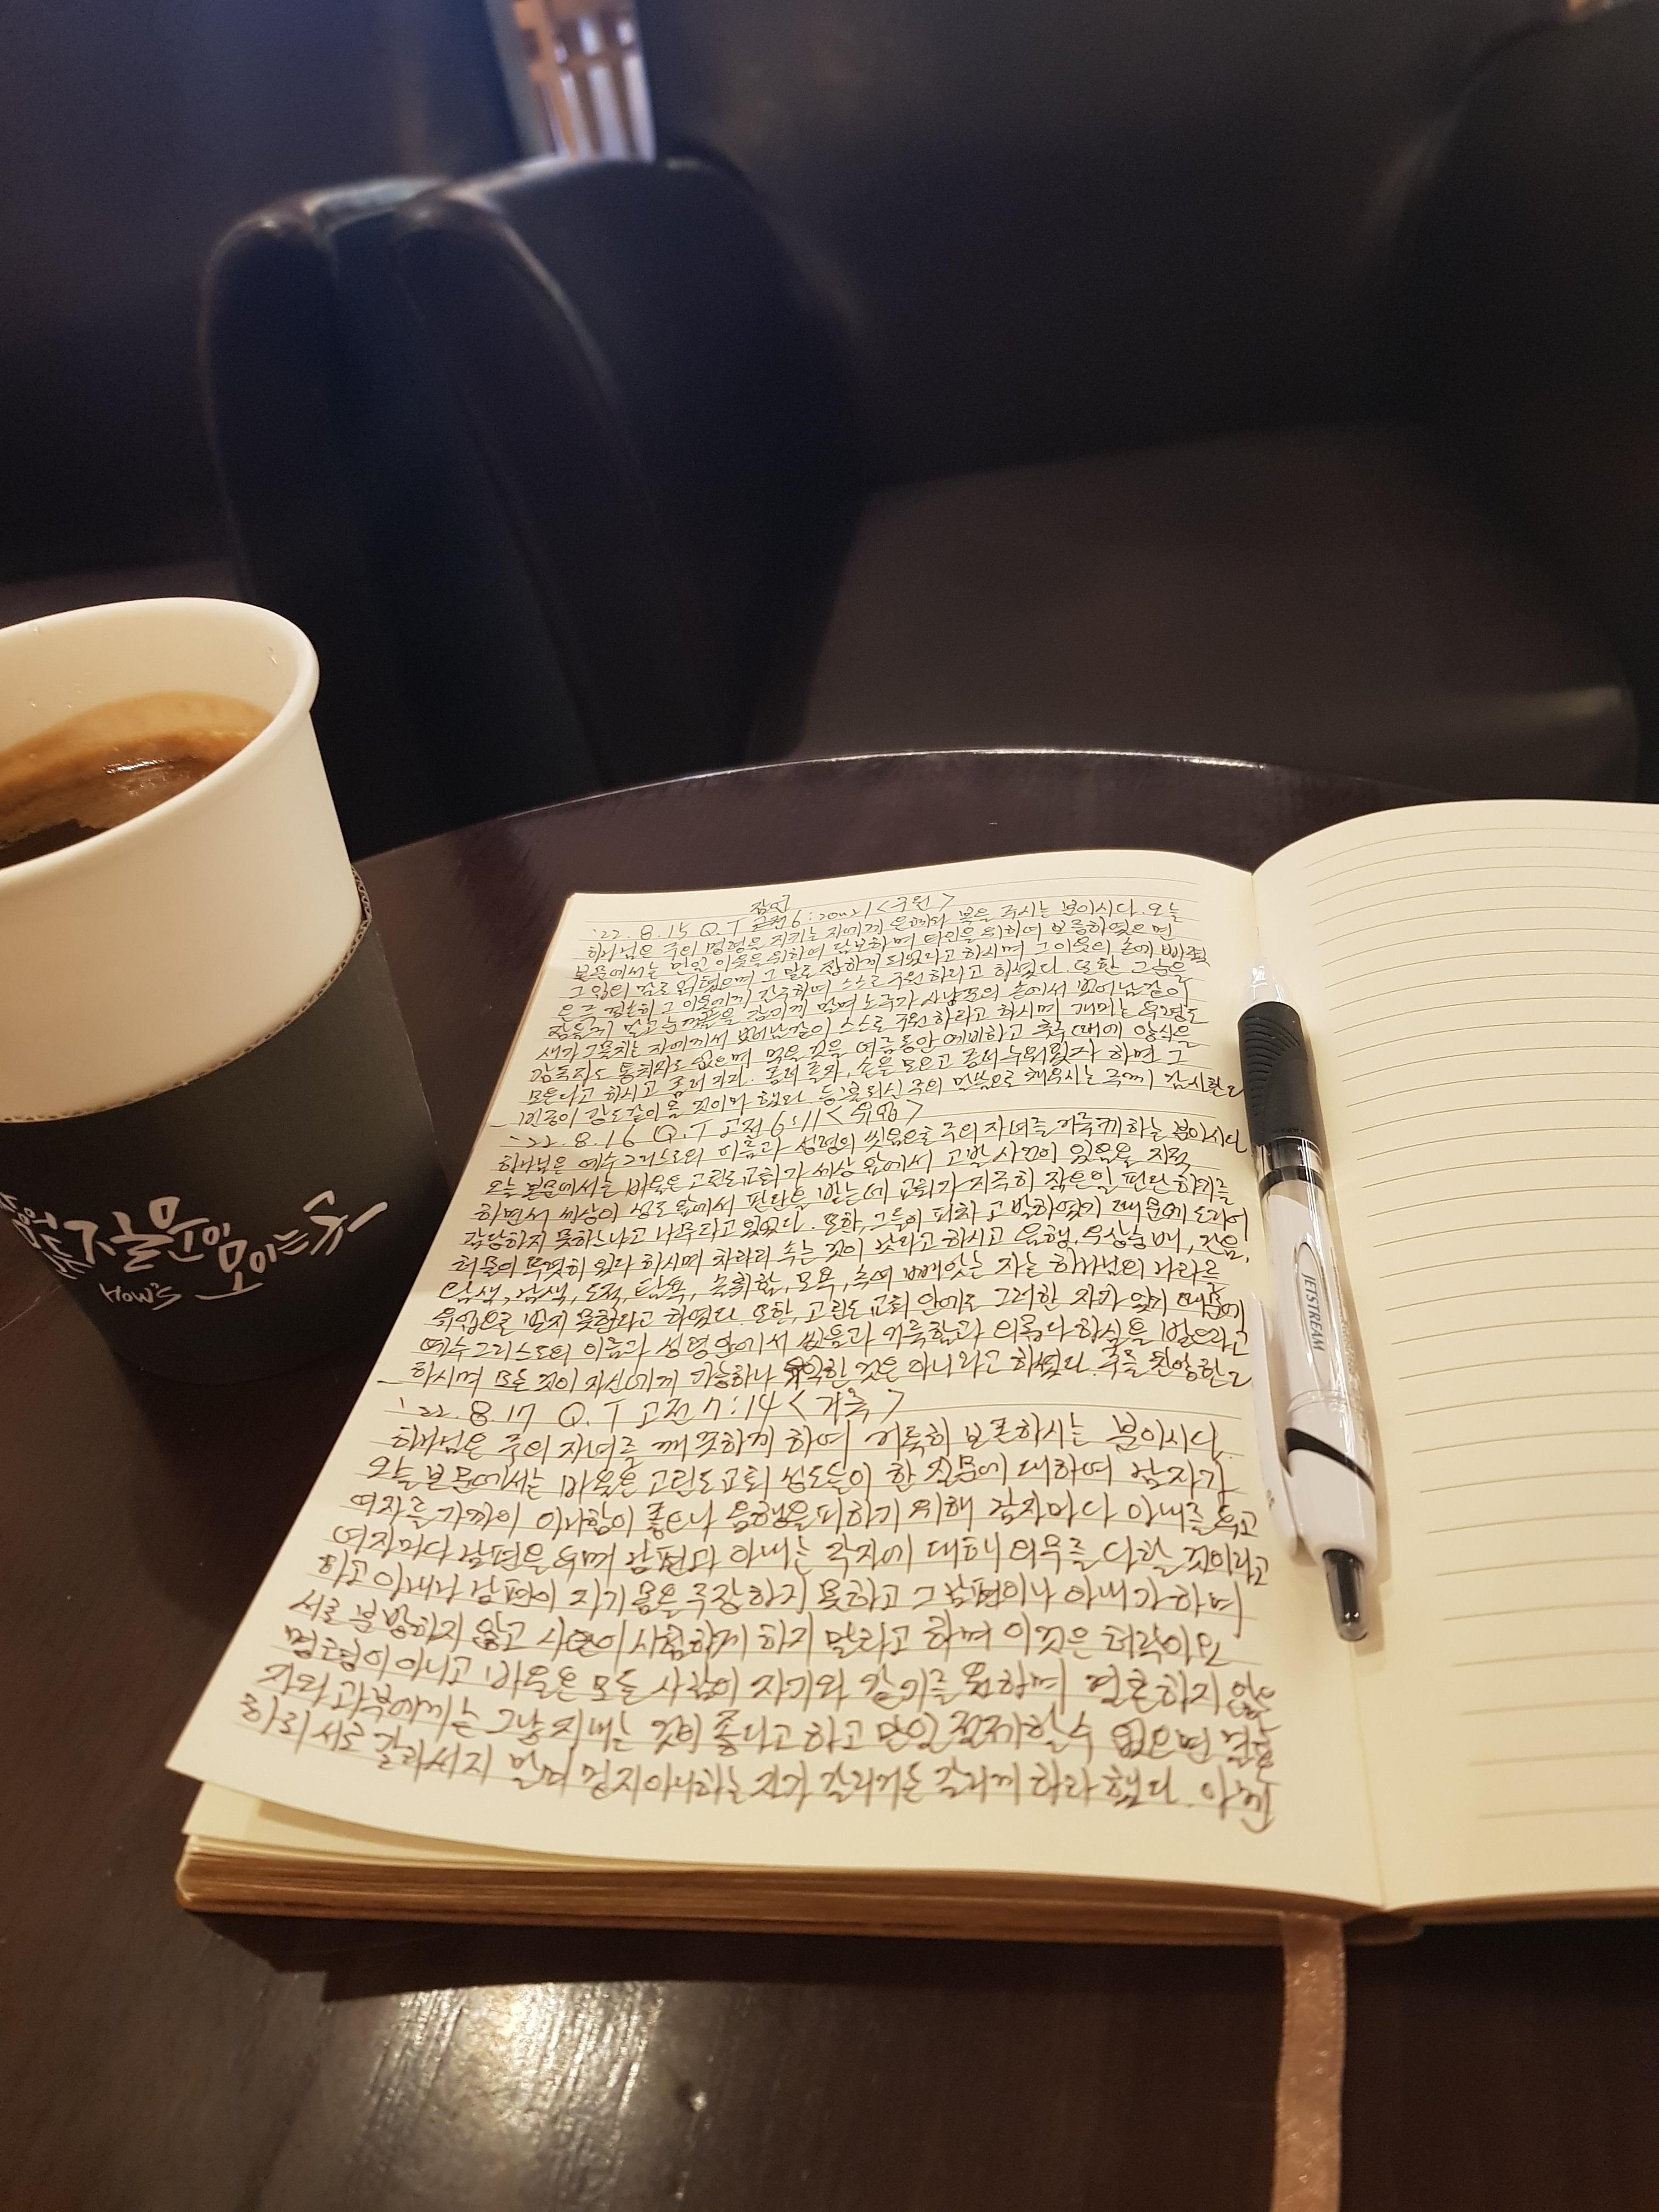 잠언
'22. 8. 15 Q.T 6:20~21 <구원>
하나님은 주의 명령을 지키는 자에게 은혜와 복을 주시는 분이시다. 오늘
본문에서는 만일 이웃을 위하여 담보하며 타인을 위하여 보증하였으면
그 입의 말로 얽혔으며 그 말로 잡히게 되었다고 하시며 그 이웃의 손에 빠졌
은즉 겸손히 그 이웃에게 간구하여 스스로 구원하라고 하셨다. 또한 그는
잠들게 말고 눈꺼풀을 감기게 말며 노루가 사냥꾼의 손에서 벗어남같이
새가 그물치는 자에게서 벗어남같이 스스로 구원하라고 하시며 개미는 두령도
감독자도 통치자도 없으며 먹을 것을 여름동안 예비하고 추수때에 양식을
모은다고 하시고 좀더 자자. 좀더 졸자, 손을 모으고 좀더 누워있자 하면 그
빈궁이 강도같이 올 것이며 주의 말씀으로 채우시는 주께 감사한다
'22. 8. 16 Q.T 고전 6:11 <유업>
하나님은 예수 그리스도의 이름과 성령의 씻음으로 주의 자녀를 거룩케하는 분이시다
오늘 본문에서는 바울은 고린도교회가 세상 앞에서 고발사건이 있음을 지적
하면서 세상이 성도 앞에서 판단을 받는데 교회가 지극히 작은일 판단하기를
감당하지 못하느냐고 나무라고 있었다. 또한, 그들이 피차 고발하였기 때문에 도리어
허물이 뚜렷히 있다 하시며 차라리 속는 것이 낫다고 하시고 음행, 우상숭배, 간음,
탐색, 남색, 도적, 탐욕, 술취함, 모욕, 속여 빼앗는 자는 하나님의 나라를
유업으로 받지 못한다고 하였다. 또한, 고린도 교회 안에도 그러한 자가 있기 때문에
예수그리스도의 이름과 성령안에서 씻음과 거룩함과 의롭다하심을 받으라고
하시며 모든 것이 자신에게 가능하나 유익한 것은 아니라고 하셨다. 주를 찬양한다
'22. 8. 17 Q.T 고전 7:14 <거룩>
하나님은 주의 자녀를 깨끗하게 하여 거룩히 보존하시는 분이시다.
오늘 본문에서는 바울은 고린도교회 성도들이 한 질문에 대하여 남자가
여자를 가까이 아니함이 좋으나 음행을 피하기 위해 남자마다 아내를 두고
여자마다 남편을 두며 남편과 아내는 각자에 대해 의무를 다할 것이라고
하고 아내나 남편이 자기 몸을 주장하지 못하고 그 남편이나 아내가 하며
서로 분방하지 않고 사탄이 시험하게 하지 말라고 하며 이것은 허락이요
명령이 아니고 바울은 모든 사람이 자기와 같기를 원하며 결혼하지 않은
자와 과부에게는 그냥 지내는 것이 좋다고 하고 만일 절제할수 없으면 결혼
하되 서로 갈라서지 말며 믿지아니하는 자가 갈리거든 갈리게 하라 했다. 아내
자골문이 모이는
HOW'S
JETSTREAM